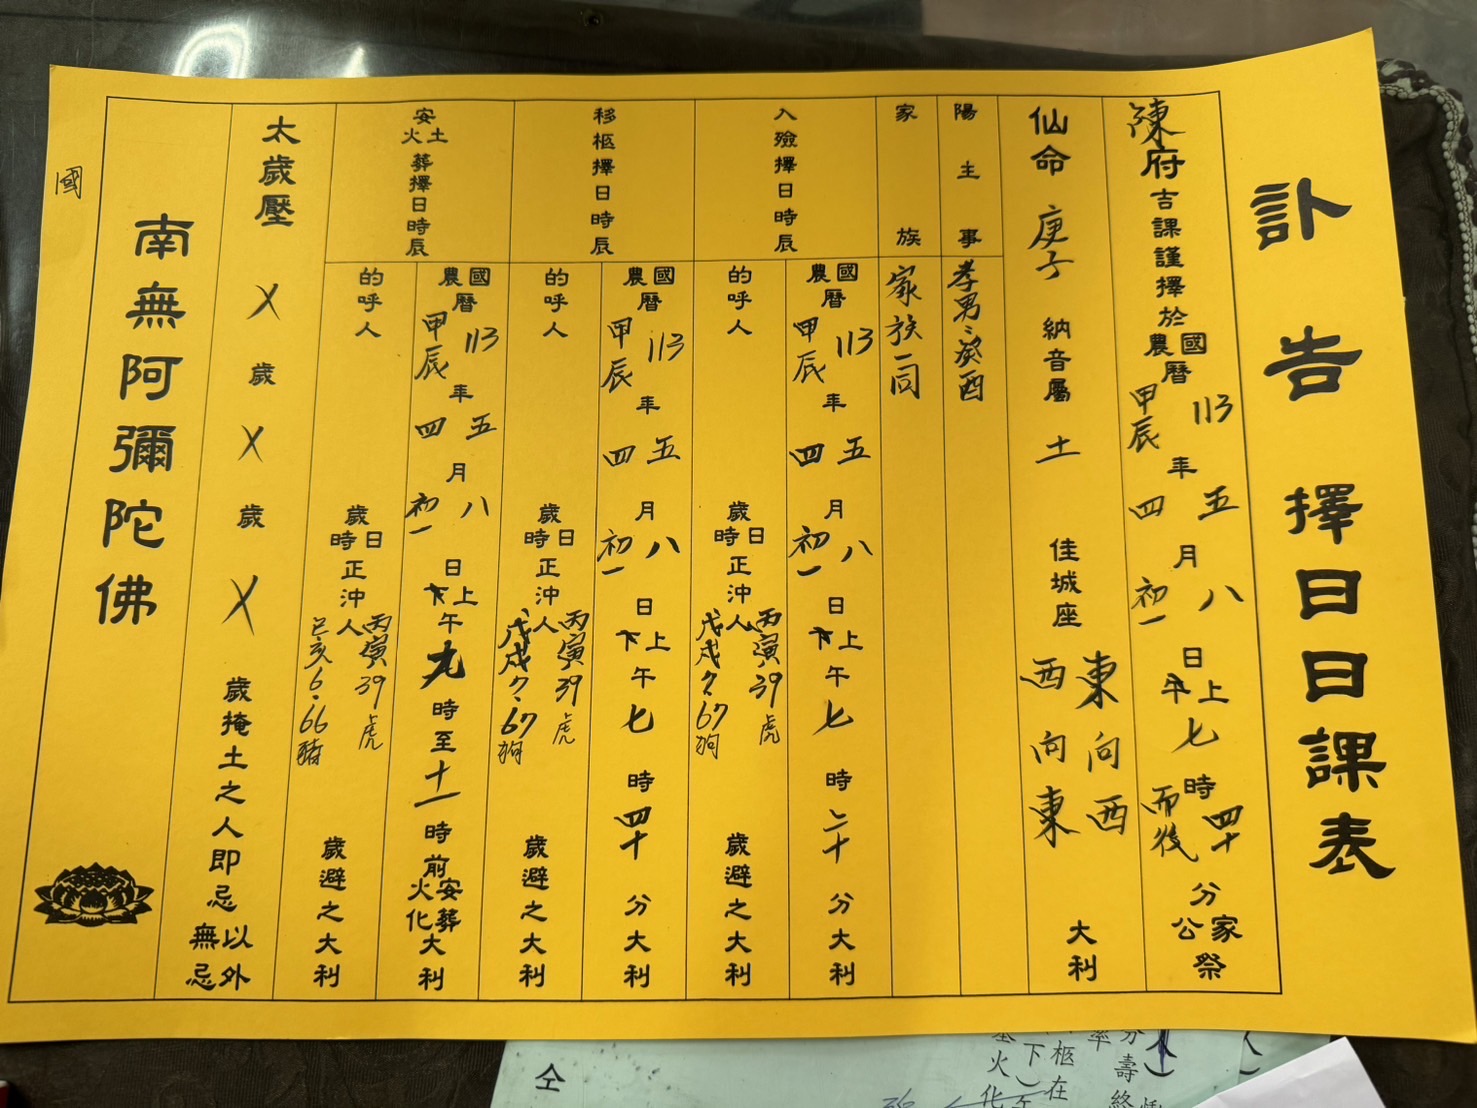 訃告擇日日課表
陳府吉課謹擇於國農曆113甲辰年五四月八初一日上午七時四十而後分家公祭
仙命庚子納音屬土佳城座東向西西向東大利
陽主事孝男:癸酉
家族家族一同
入殮擇日時辰
國農曆113甲辰年五四月八初一日上下午七時二十分大利
的呼人歲日時正沖人丙寅39虎戊戌7.67狗歲避之大利
移柩擇日時辰
國農曆113甲辰年五四月八初一日上下午七時四十分大利
的呼人歲日時正沖人丙寅39虎戊戌7.67狗歲避之大利
安土火葬擇日時辰
國農曆113甲辰年五四月八初一日上下午九時至十一時前安葬火化大利
的呼人歲日時正沖人丙寅39虎己亥6.66豬歲避之大利
太歲壓X歲X歲X歲掩土之人即忌以外無忌
南無阿彌陀佛
國